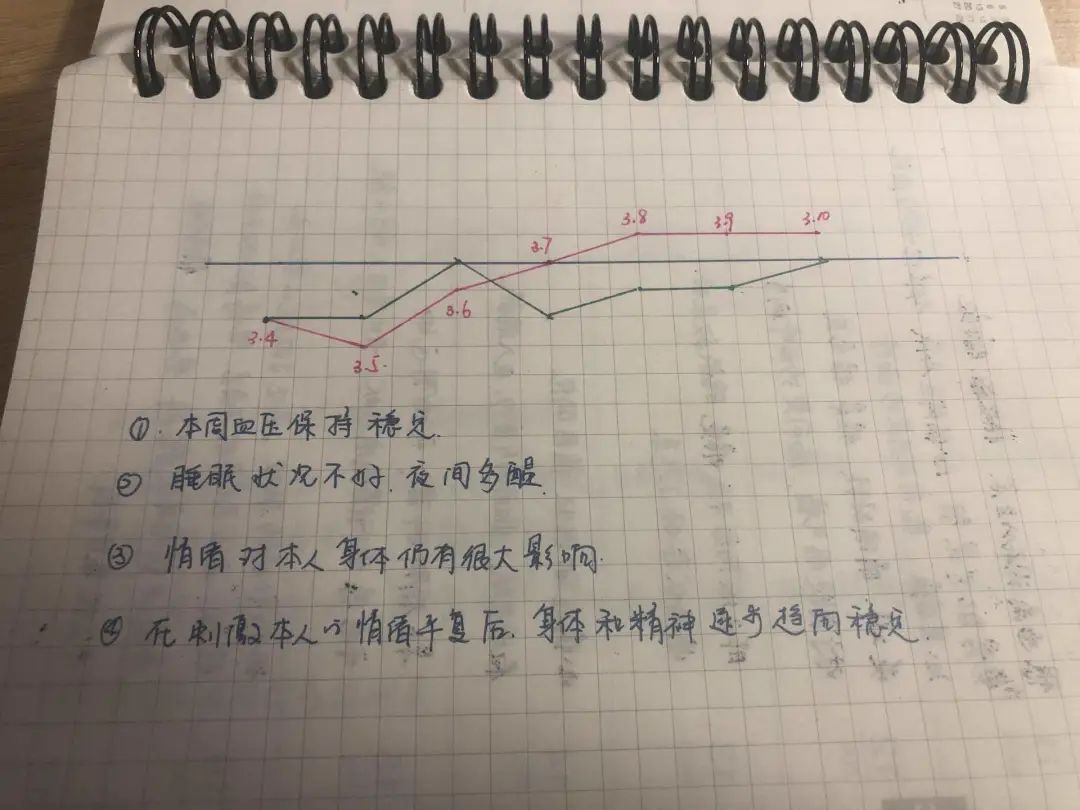 3.8 3.9 3.10
3.7
3.6
3.4
3.5
①.本周血压保持稳定.
② 睡眠状况不好.夜间多醒.
③ 情绪对本人身体仍有很大影响.
④ 在刺激本人的情绪平复后.身体和精神逐步趋向稳定.